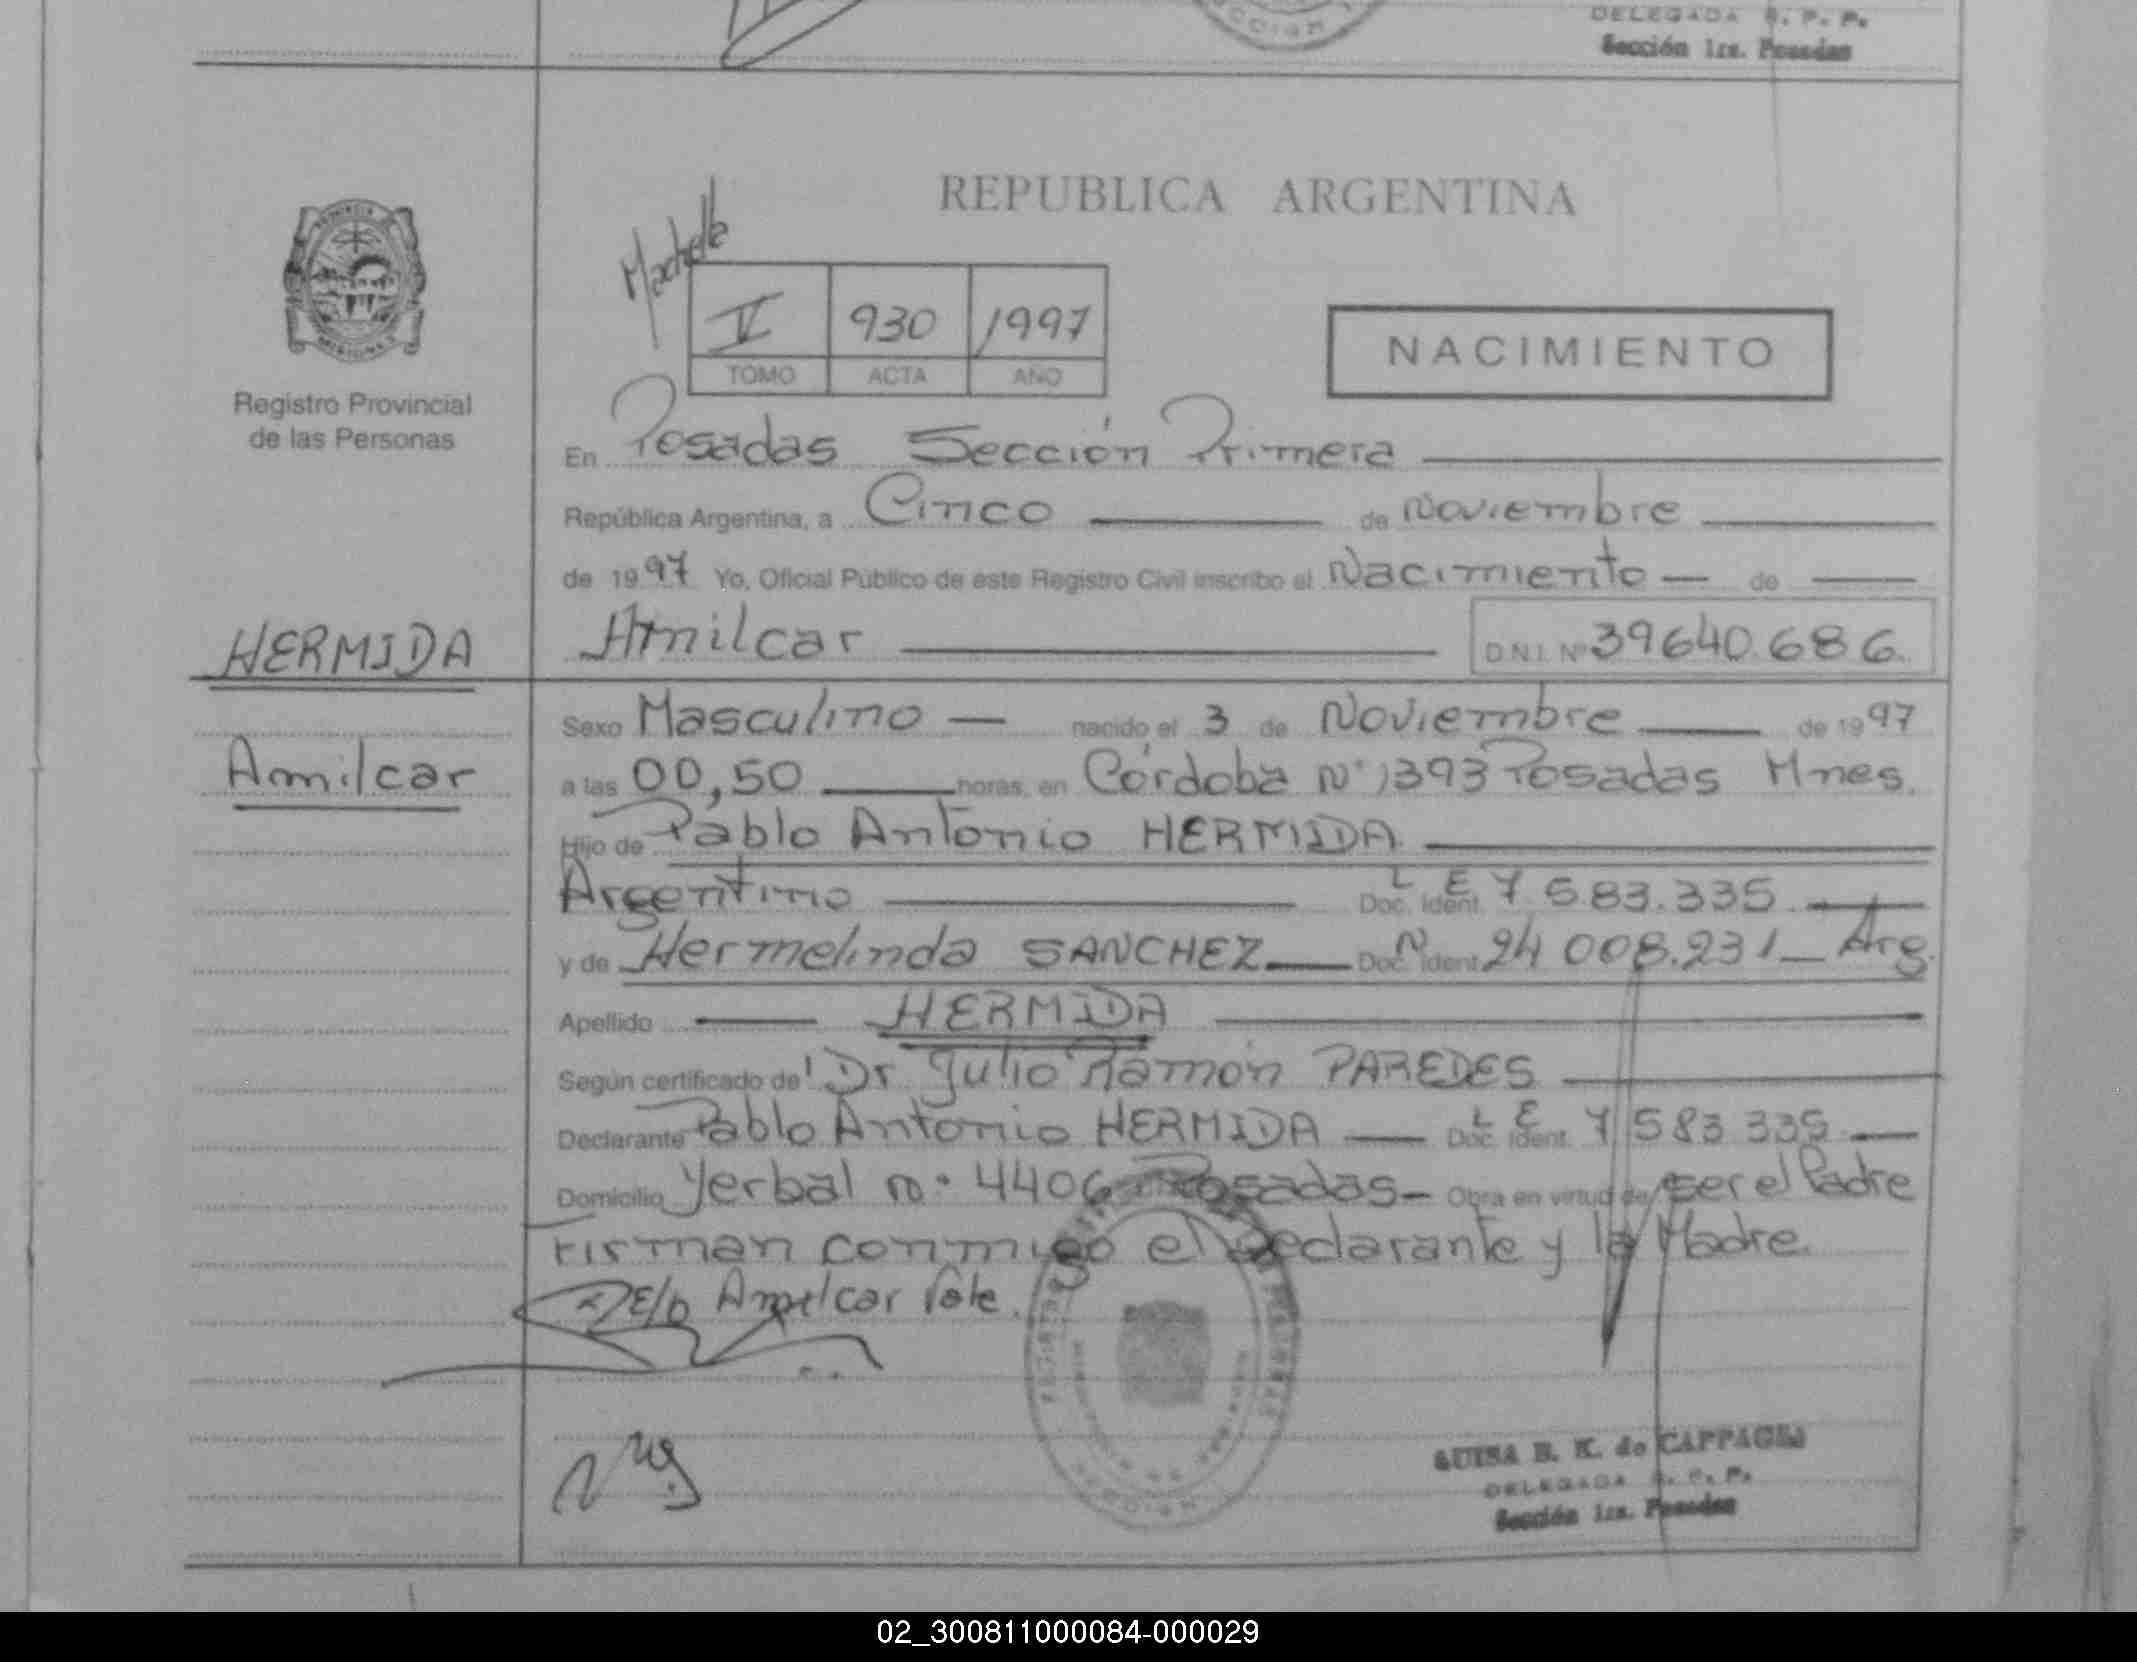 DELEGADA R. P. P.
Sección 1ra. Posadas
REPUBLICA ARGENTINA
V 930 1997
TOMO ACTA AÑO
NACIMIENTO
Registro Provincial
de las Personas
En Posadas Sección Primera
República Argentina, a Cinco de Noviembre
de 1997 Yo, Oficial Público de este Registro Civil inscribo el Nacimiento de
HERMIDA
Amilcar D.N.I. Nº 39640.686
Sexo Masculino nacido el 3 de Noviembre de 1997
Amilcar
a las 00,50 horas, en Córdoba Nº 1393 Posadas Mnes.
Hijo de Pablo Antonio HERMIDA
Argentino Doc. Ident. L E 7.583.335
y de Hermelinda SANCHEZ Doc. Ident. 24 008.231 Arg.
Apellido HERMIDA
Según certificado de Dr Julio Ramón PAREDES
Declarante Pablo Antonio HERMIDA Doc. Ident. L E 7 583 335
Domicilio Yerbal nº 4406 Posadas Obra en virtud de ser el Padre
Firman conmigo el declarante y la Madre.
E/D Amilcar Vale.
LUISA B. K. de
DELEGADA R. P. P.
Sección 1ra. Posadas
02_300811000084-000029